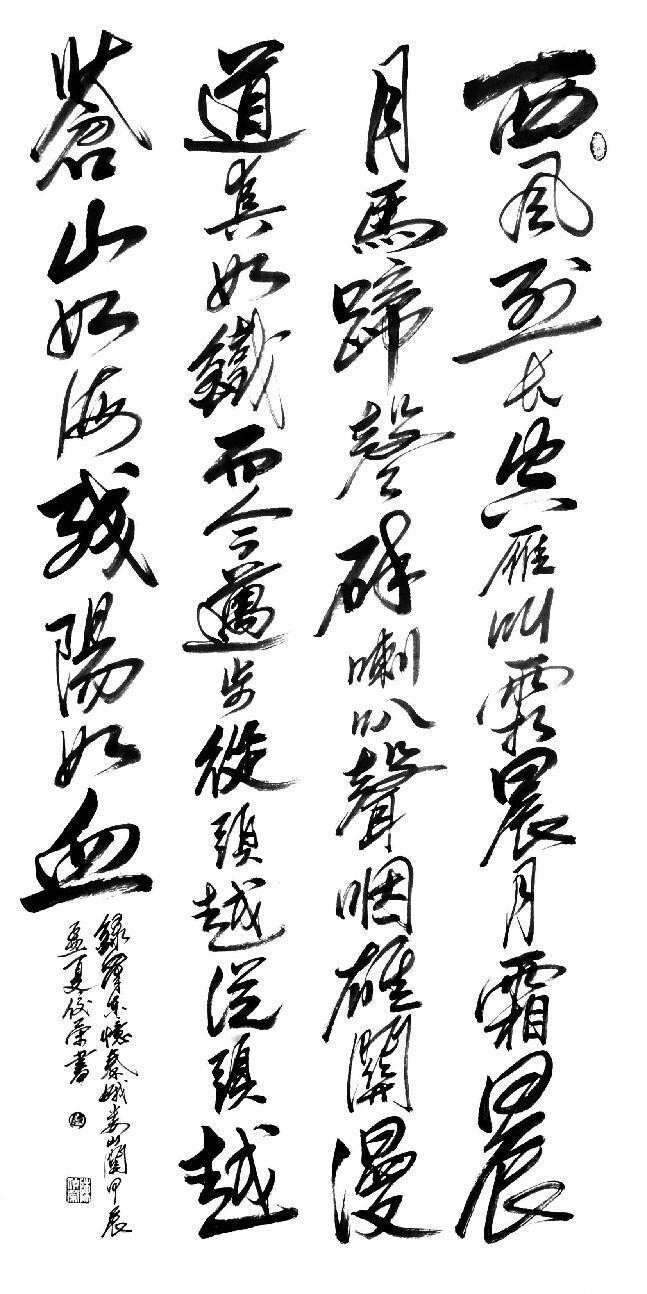 西風烈長空雁叫霜晨月霜晨
月馬蹄聲碎喇叭聲咽雄關漫
道真如鐵而今邁步從頭越從頭越
蒼山如海殘陽如血
錄澤東憶秦娥婁山關甲辰
孟夏俊榮書